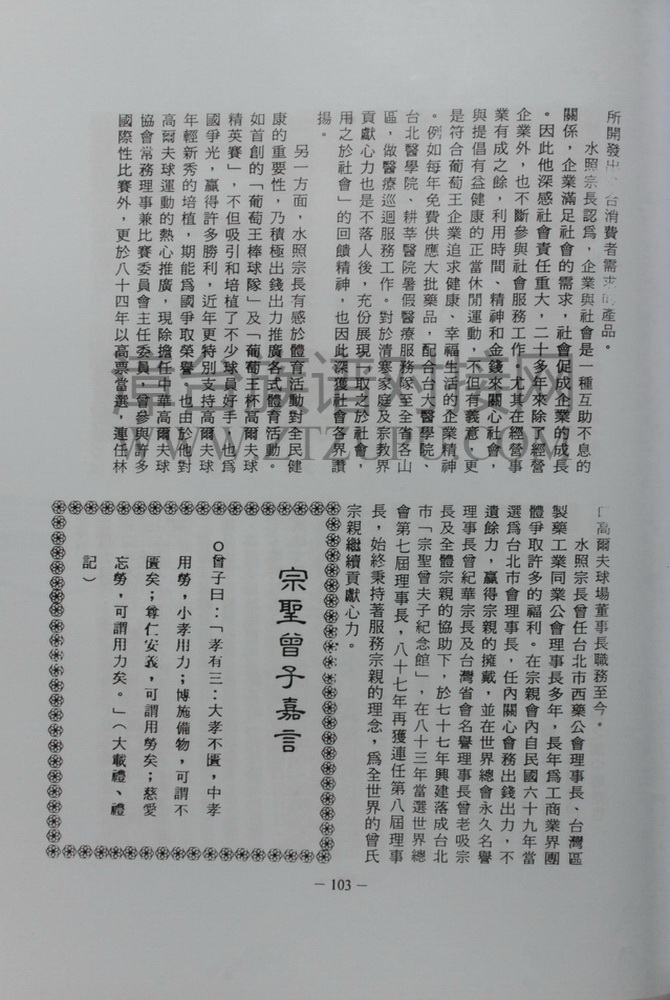 所開發出符合消費者需求的產品。
水照宗長認爲，企業與社會是一種互助不息的
關係，企業滿足社會的需求，社會促成企業的成長
。因此他深感社會責任重大，二十多年來除經營
企業外，也不斷參與社會服務工作。尤其在經營事
業有成之餘，利用時間、精神和金錢來關心社會，
與提倡有益健康的正當休閒運動，不但有義意，更
是符合葡萄王企業追求健康、幸福生活的企業精神
。例如每年免費供應大批藥品，配合台大醫學院、
台北醫學院、耕莘醫院暑假醫療服務隊至全省各山
區，做醫療巡迴服務工作。對於清寒家庭及宗教界
貢獻心力也是不落人後，充份展現「取之於社會，
用之於社會」的回饋精神，也因此深獲社會各界讚
揚。
另一方面，水照宗長有感於體育活動對全民健
康的重要性，乃積極出錢出力推廣各式體育活動。
如首創的「葡萄王棒球隊」及「葡萄王杯高爾夫球
精英賽」，不但吸引和培植了不少球員好手，也爲
國爭光，贏得許多勝利，近年更特別支持高爾夫球
年輕新秀的培植，期能爲國爭取榮譽。也由於他對
高爾夫球運動的熱心推廣，現除擔任中華高爾夫球
協會常務理事兼比賽委員會主任委員，曾參與許多
國際性比賽外，更於八十四年以高票當選，連任林
口高爾夫球場董事長職務至今。
水照宗長曾任台北市西藥公會理事長、台灣區
製藥工業同業公會理事長多年，長年爲工商業界團
體爭取許多的福利。在宗親會內自民國六十九年當
選爲台北市會理事長，任內關心會務出錢出力，不
遺餘力，贏得宗親的擁戴，並在世界總會永久名譽
理事長曾紀華宗長及台灣省會名譽理事長曾老吸宗
長及全體宗親的協助下，於七十七年興建落成台北
市「宗聖曾夫子紀念館」，在八十三年當選世界總
會第七屆理事長，八十七年再獲連任第八屆理事
長，始終秉持著服務宗親的理念，爲全世界的曾氏
宗親繼續貢獻心力。
宗聖曾子嘉言
○曾子曰：「孝有三：大孝不匱，中孝
用勞，小孝用力；博施備物，可謂不
匱矣；尊仁安義，可謂用勞矣；慈愛
忘勞，可謂用力矣。」（大戴禮、禮
記）
— 103 —
WWW.YTZUPU.COM